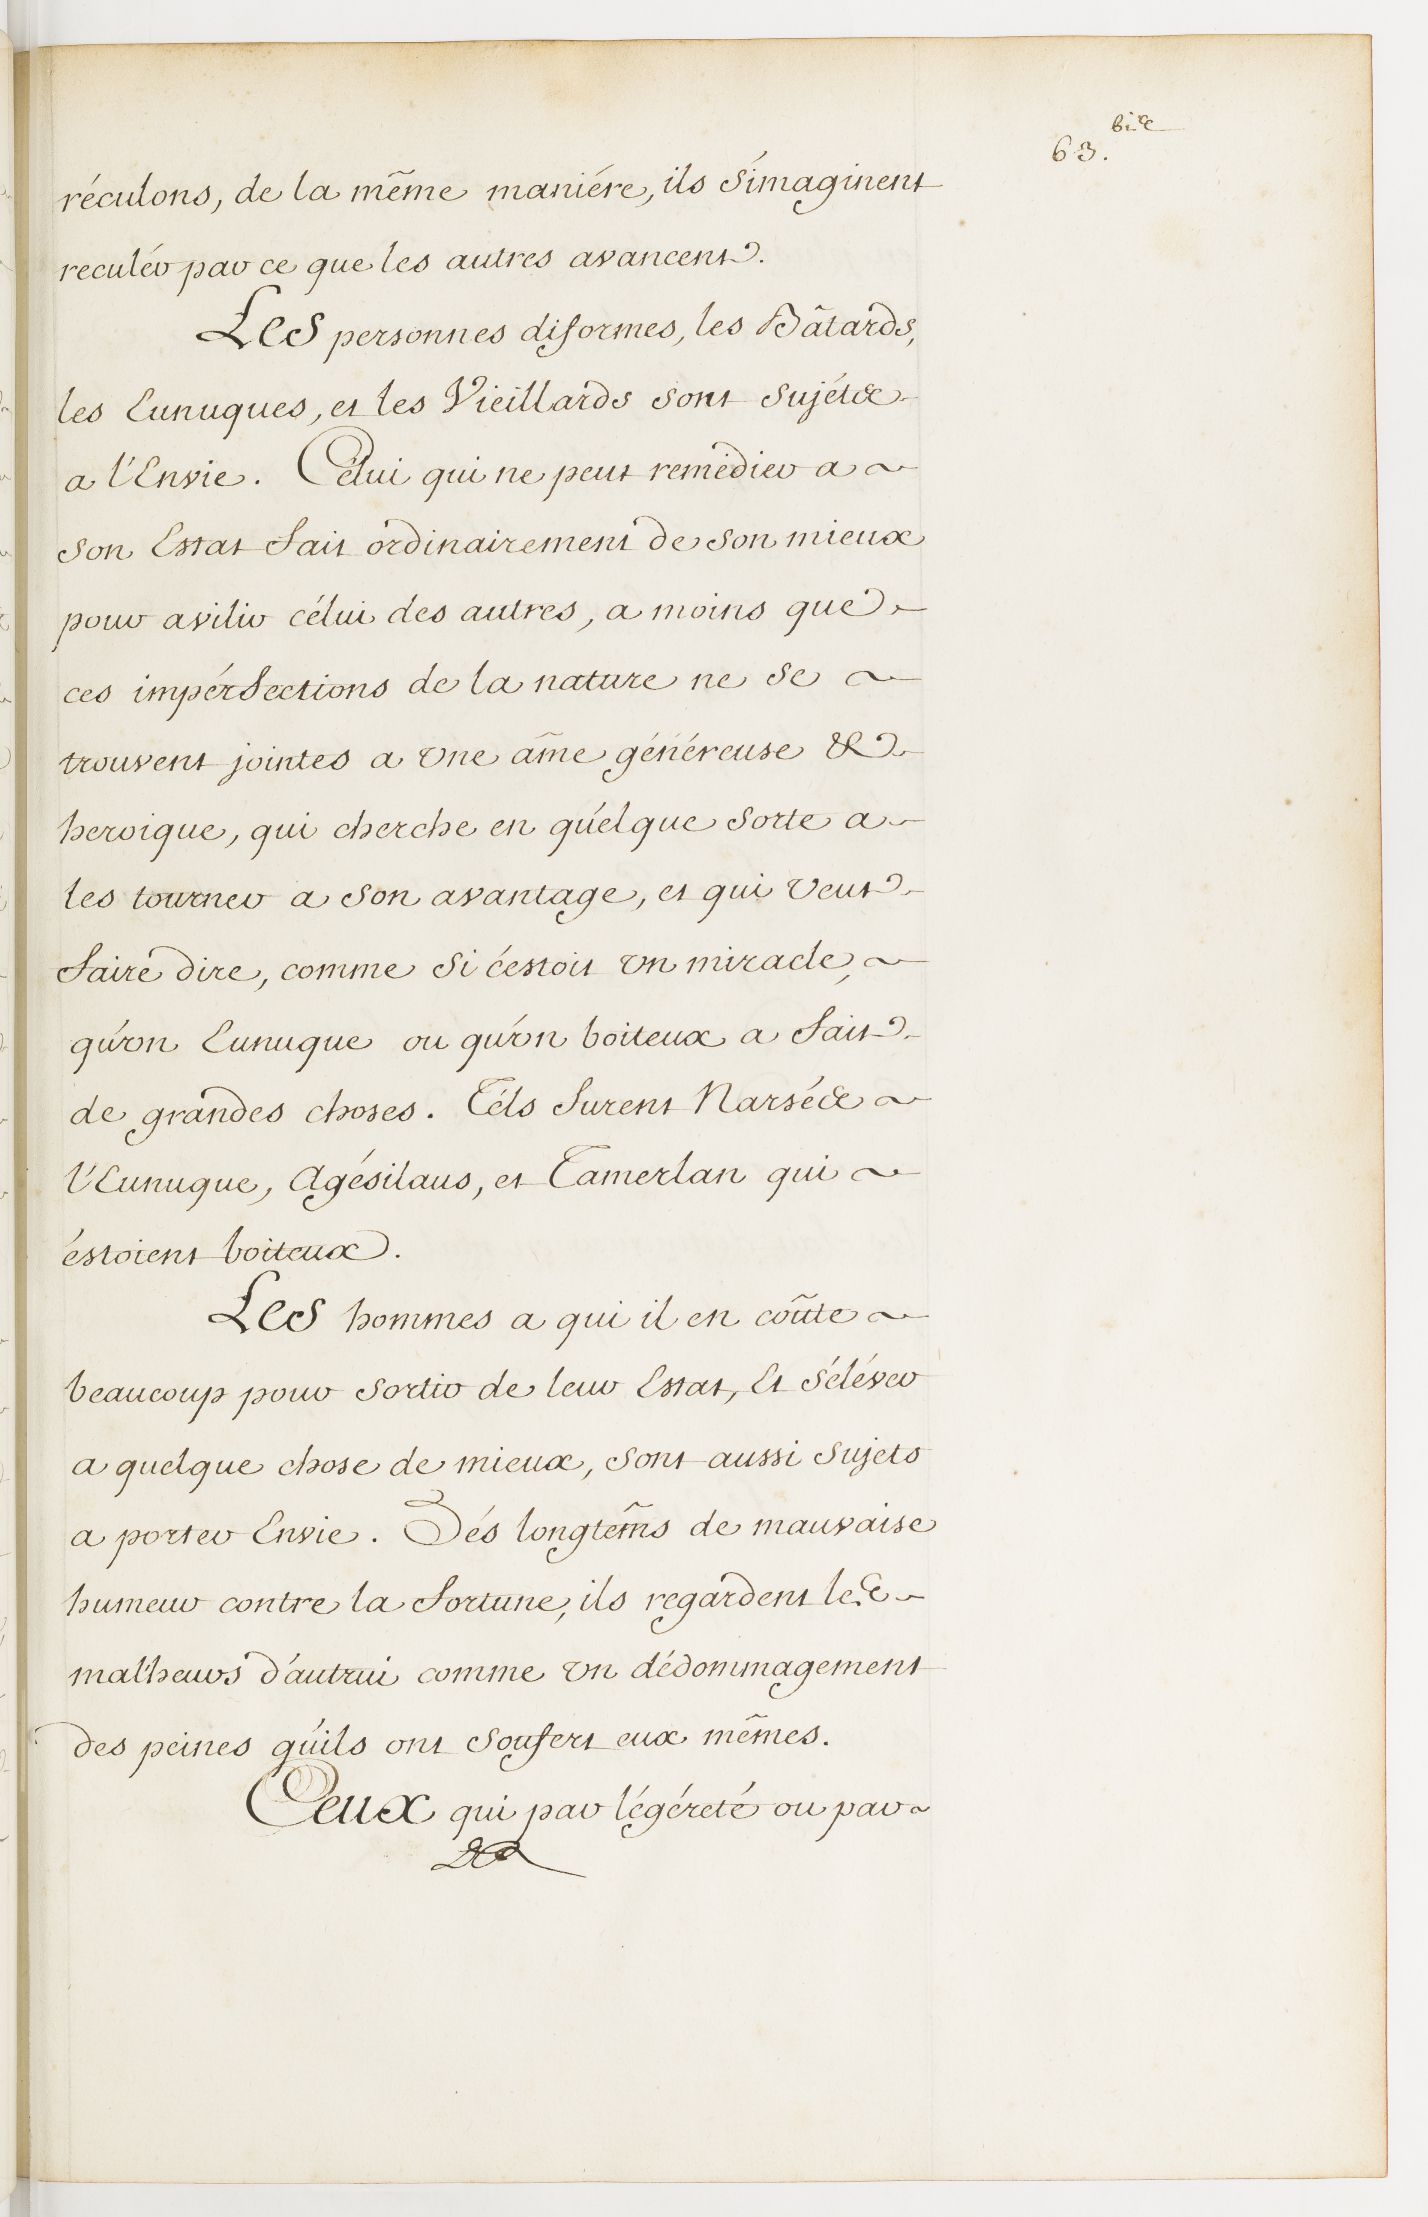 63. bis
réculons, de la même maniére, ils s'imaginent
reculér par ce que les autres avancent.
Les personnes diformes, les Bâtards,
les Eunuques, et les Vieillards sont sujéts
a l'Envie. Célui qui ne peut remédier a
son Estat fait ordinairement de son mieux
pour avilir célui des autres, a moins que
ces impérfections de la nature ne se
trouvent jointes a une âme généreuse &
heroique, qui cherche en quélque sorte a
les tourner a son avantage, et qui veut
faire dire, comme si c'estoit un miracle,
qu'un Eunuque ou qu'un boiteux a fait
de grandes choses. Téls furent Narsés
l'Eunuque, Agésilaus, et Tamerlan qui
éstoient boiteux.
Les hommes a qui il en coûte
beaucoup pour sortir de leur Estat, Et s'éléver
a quelque chose de mieux, sont aussi sujets
a porter Envie. Dés longtems de mauvaise
humeur contre la fortune, ils regardent les
malheurs d'autrui comme un dédommagement
des peines qu'ils ont soufert eux mêmes.
Ceux qui par légéreté ou par